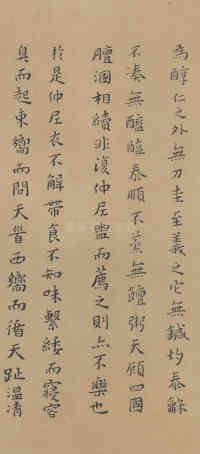 為醇仁之外無刀圭至義之它無鍼灼泰龢
不湊無醯醢泰順不蒸無饘粥天顧四國
膻涸相續非復仲尼盥而薦之則亦不樂也
於是仲尼衣不解帶食不知味繫緌而寢容
臭而起東嚮而問天晉西嚮而循天趾溫凊